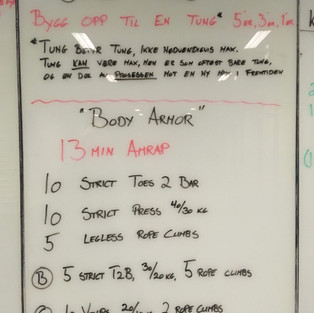 BYGG OPP TIL EN TUNG* 5'er, 3'er, 1'er
*TUNG BETYR TUNG, IKKE NØDVENDIGVIS MAX.
TUNG KAN VÆRE MAX, MEN ER SOM OFTEST BARE TUNG,
OG EN DEL AV PROSESSEN MOT EN NY MAX I FREMTIDEN
"BODY ARMOR"
13 MIN AMRAP
10 STRICT TOES 2 BAR
10 STRICT PRESS 40/30 KG
5 LEGLESS ROPE CLIMBS
B 5 STRICT T2B, 30/20 KG, 5 ROPE CLIMBS
2 ROPE CLIMBS